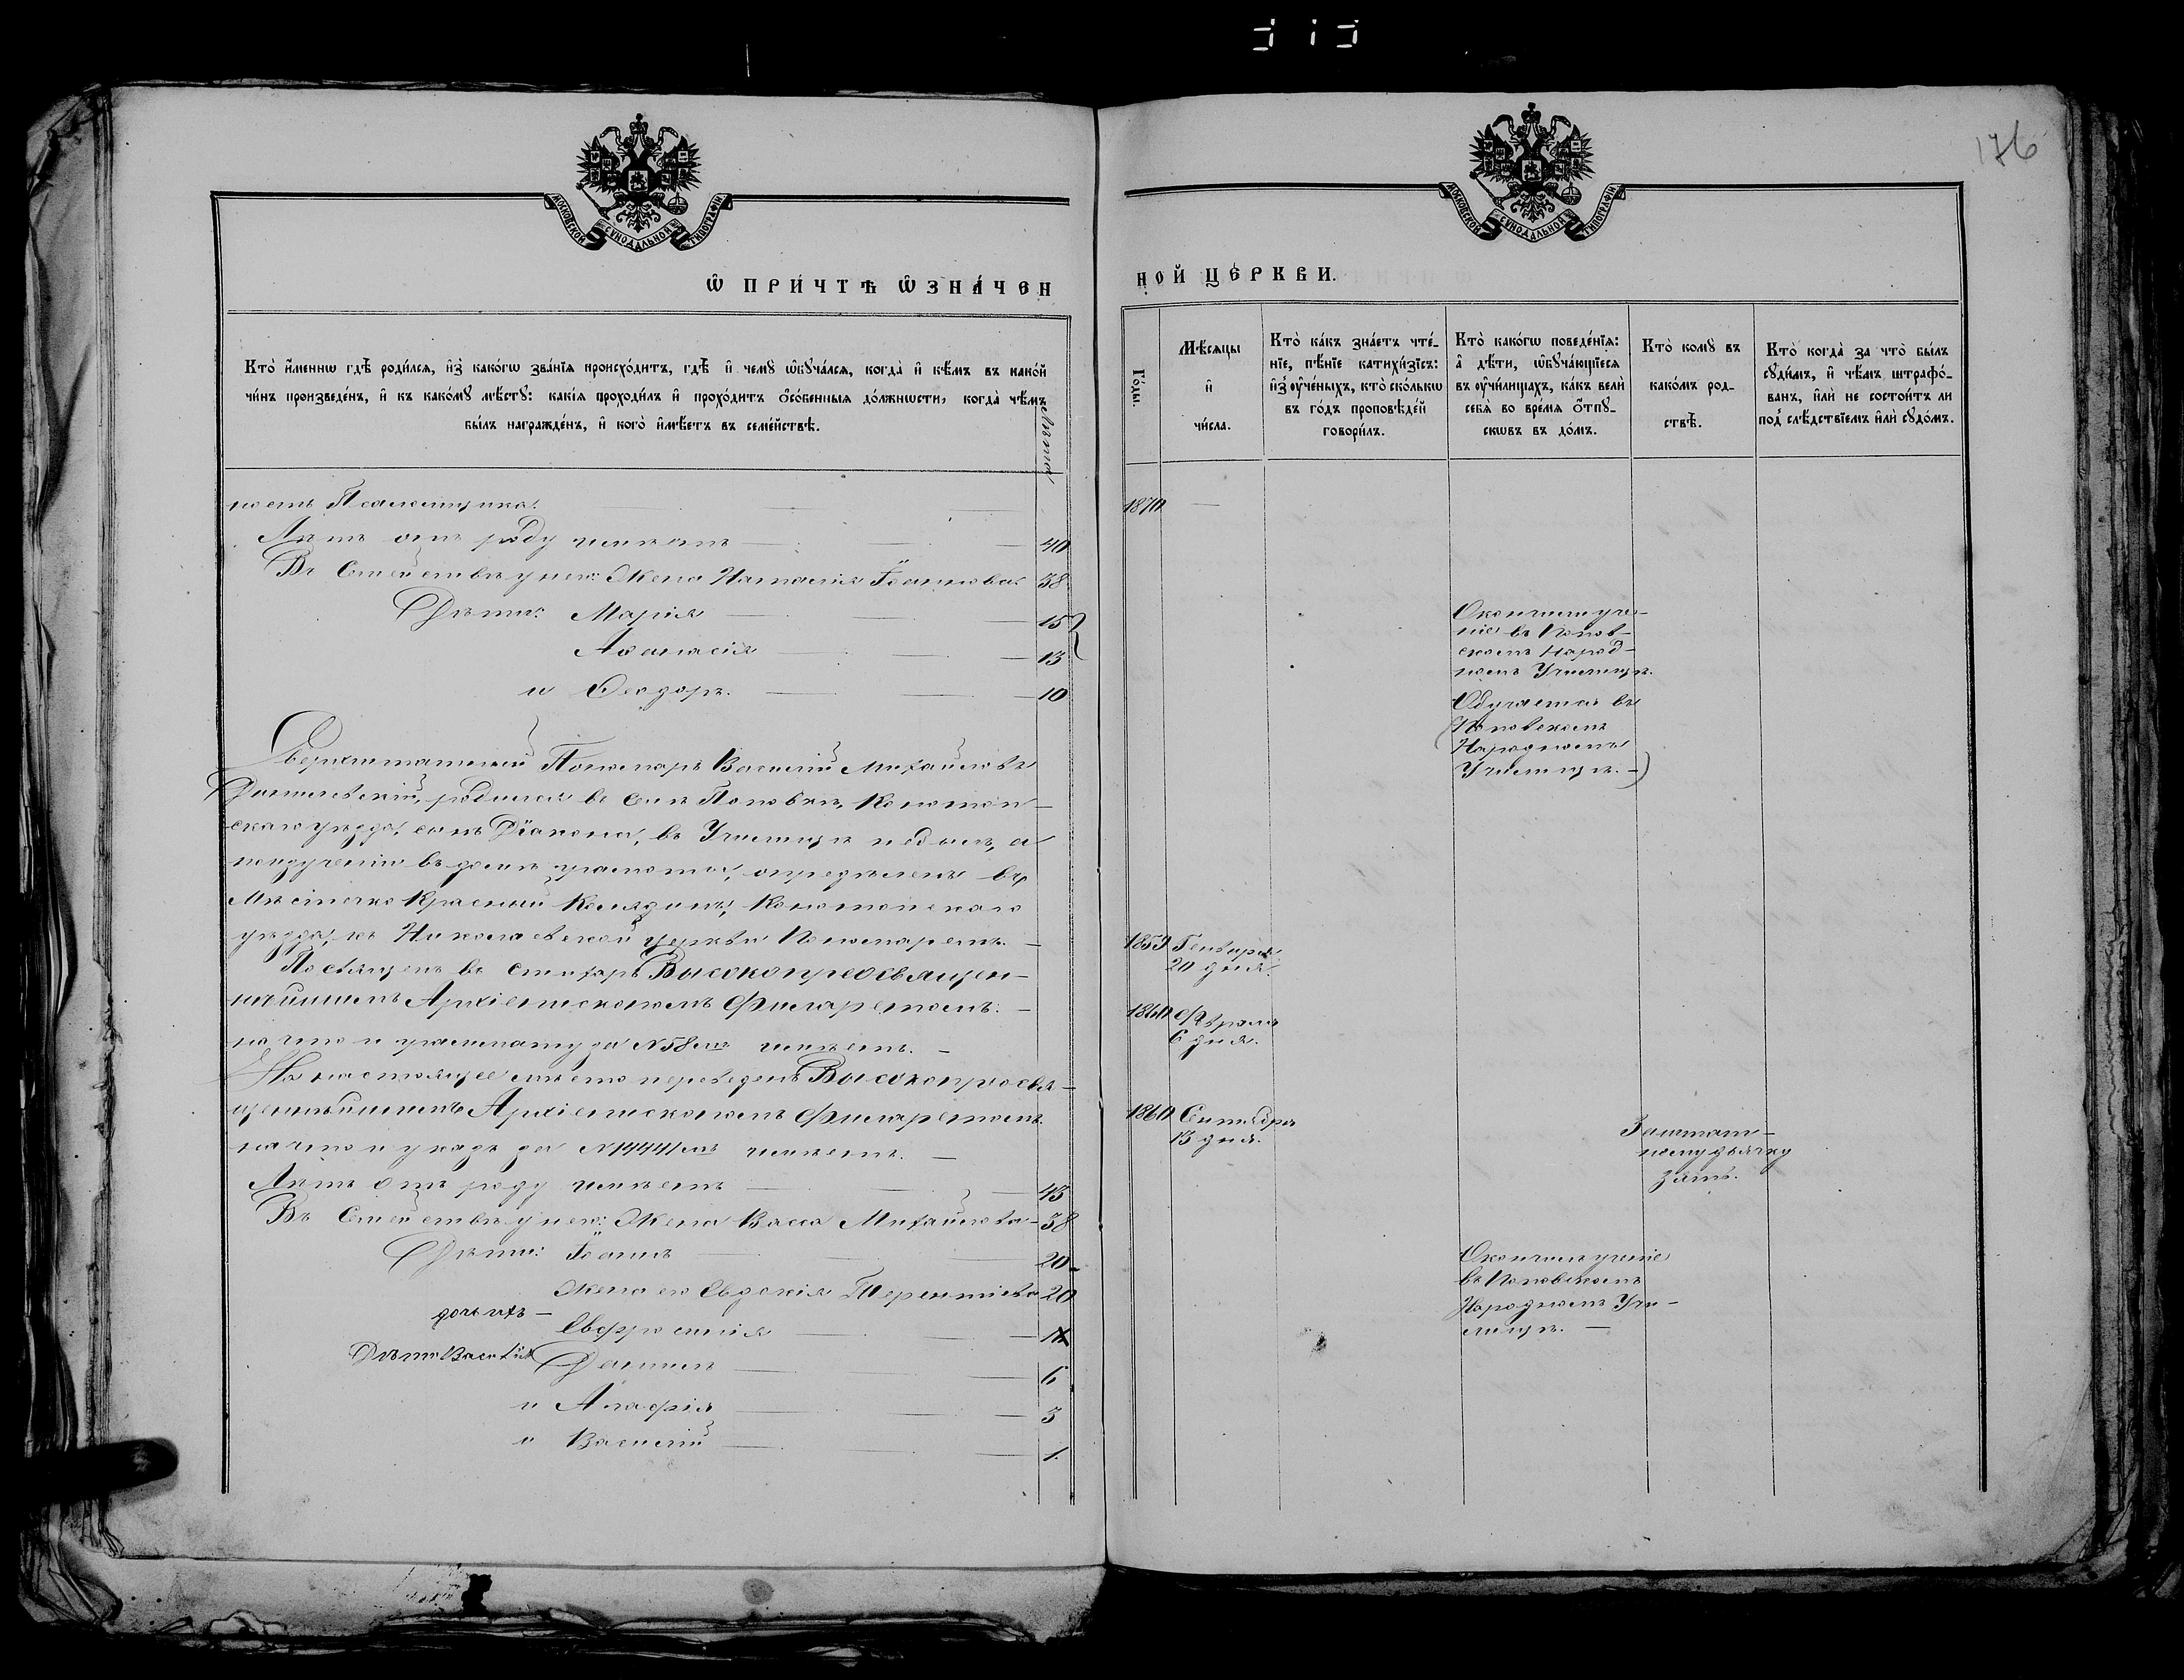 176
МОСКОВСКОЙ СѴНОДАЛЬНОЙ ТИПОГРАФІИ
МОСКОВСКОЙ СѴНОДАЛЬНОЙ ТИПОГРАФІИ
Ѡ ПРИ́ЧТѢ ѠЗНА́ЧЕН
НОЙ ЦЕ́РКВИ.
Кто̀ и҆́меннѡ гдѣ̀ роди́лсѧ, и҆з̾ како́гѡ зва́нїѧ происхо́дитъ, гдѣ̀ и҆ чемꙋ̀ ѡ҆бꙋча́лсѧ, когда̀ и҆ кѣ́мъ въ како́й
чи́нъ произведе́нъ, и҆ къ како́мꙋ мѣ́стꙋ: какі̑ѧ проходи́лъ и҆ прохо́дитъ ѻ҆со́бенныѧ до́лжнѡсти, когда̀ чѣ́мъ
бы́лъ награжде́нъ, и҆ кого̀ и҆мѣ́етъ въ семе́йствѣ.
Лѣта
Го́ды.
Мѣ́сѧцы
и҆
чи́сла.
Кто̀ ка́къ зна́етъ чте́-
нїе, пѣ́нїе катихи́зїсъ:
и҆з̾ ᲂу҆че́ныхъ, кто̀ ско́лькѡ
въ го́дъ проповѣ́дей
говори́лъ.
Кто̀ како́гѡ поведе́нїѧ:
а҆ дѣ́ти, ѡ҆бꙋча́ющїесѧ
въ ᲂу҆чи́лищахъ, ка́къ велѝ
себѧ̀ во вре́мѧ ѿпꙋ-
скѡвъ въ до́мъ.
Кто̀ комꙋ̀ въ
како́мъ род-
ствѣ̀.
Кто̀ когда̀ за что̀ бы́лъ
сꙋди́мъ, и҆ чѣ́мъ штрафо́-
ванъ, и҆лѝ не состои́тъ ли
под̾ слѣ́дствїемъ и҆лѝ сꙋдо́мъ.
ность Псаломщика. 1870
Лѣтъ отъ роду имѣетъ 40
Въ Семействѣ у него: Жена Наталія Іоаннова 38
Дѣти: Марія 15
Аѳанасія 13
и Ѳеодоръ. 10
Окончили уче-
ніе въ Попов-
скомъ Народ-
номъ Училищѣ.
Обучается въ
Поповскомъ
Народномъ
Училищѣ.
Сверхштатный Пономарь Василій Михайловъ
родился въ Селѣ Поповкѣ, Конотоп-
скаго уѣзда, сынъ Діакона, въ Училищѣ небылъ, а
по изученіи въ домѣ грамоты, опредѣленъ въ
Мѣстечко Красный Колядинъ, Конотопскаго
уѣзда, къ Николаевской церкви Пономаремъ. 1859 Генваря
20 дня.
Посвященъ въ Стихарь Высокопреосвящен-
нѣйшимъ Архіепископомъ Филаретомъ. 1860 Февраля
6 дня.
на что и граммату за №58мъ имѣетъ.
На настоящее мѣсто переведенъ Высокопреосвя-
щеннѣйшимъ Архіепископомъ Филаретомъ. 1860 Сентября
13 дня.
на что и указъ за №14441мъ имѣетъ.
Заштат-
ному дьячку
зять.
Лѣтъ отъ роду имѣетъ 43
Въ Семействѣ у него: Жена Васса Михайлова 38
Дѣти: Іоаннъ 20
Жена его Евдокія Терентіева 20
дочь ихъ Евфросинія
Дѣти Василія Даніилъ 6
и Агафія 3
и Василій 1.
Окончилъ ученіе
въ Поповскомъ
Народномъ Учи-
лищѣ.